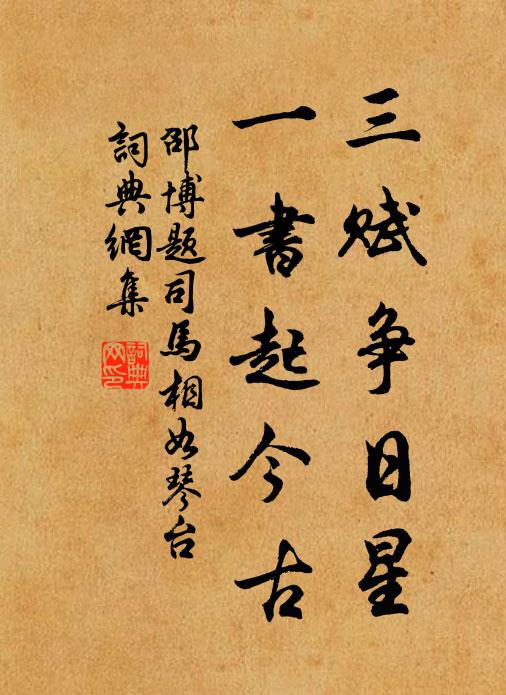 三赋争日星
一書起今古
邵博题司馬相如琴台
詞典網集
詞典網印